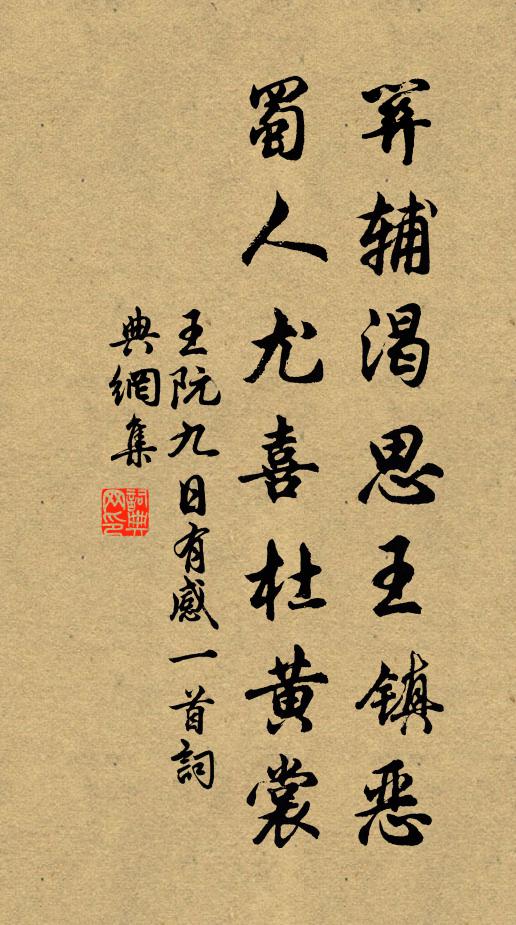 关辅渴思王镇恶
蜀人尤喜杜黄裳
王阮九日有感一首詞
典網集
詞典
网印